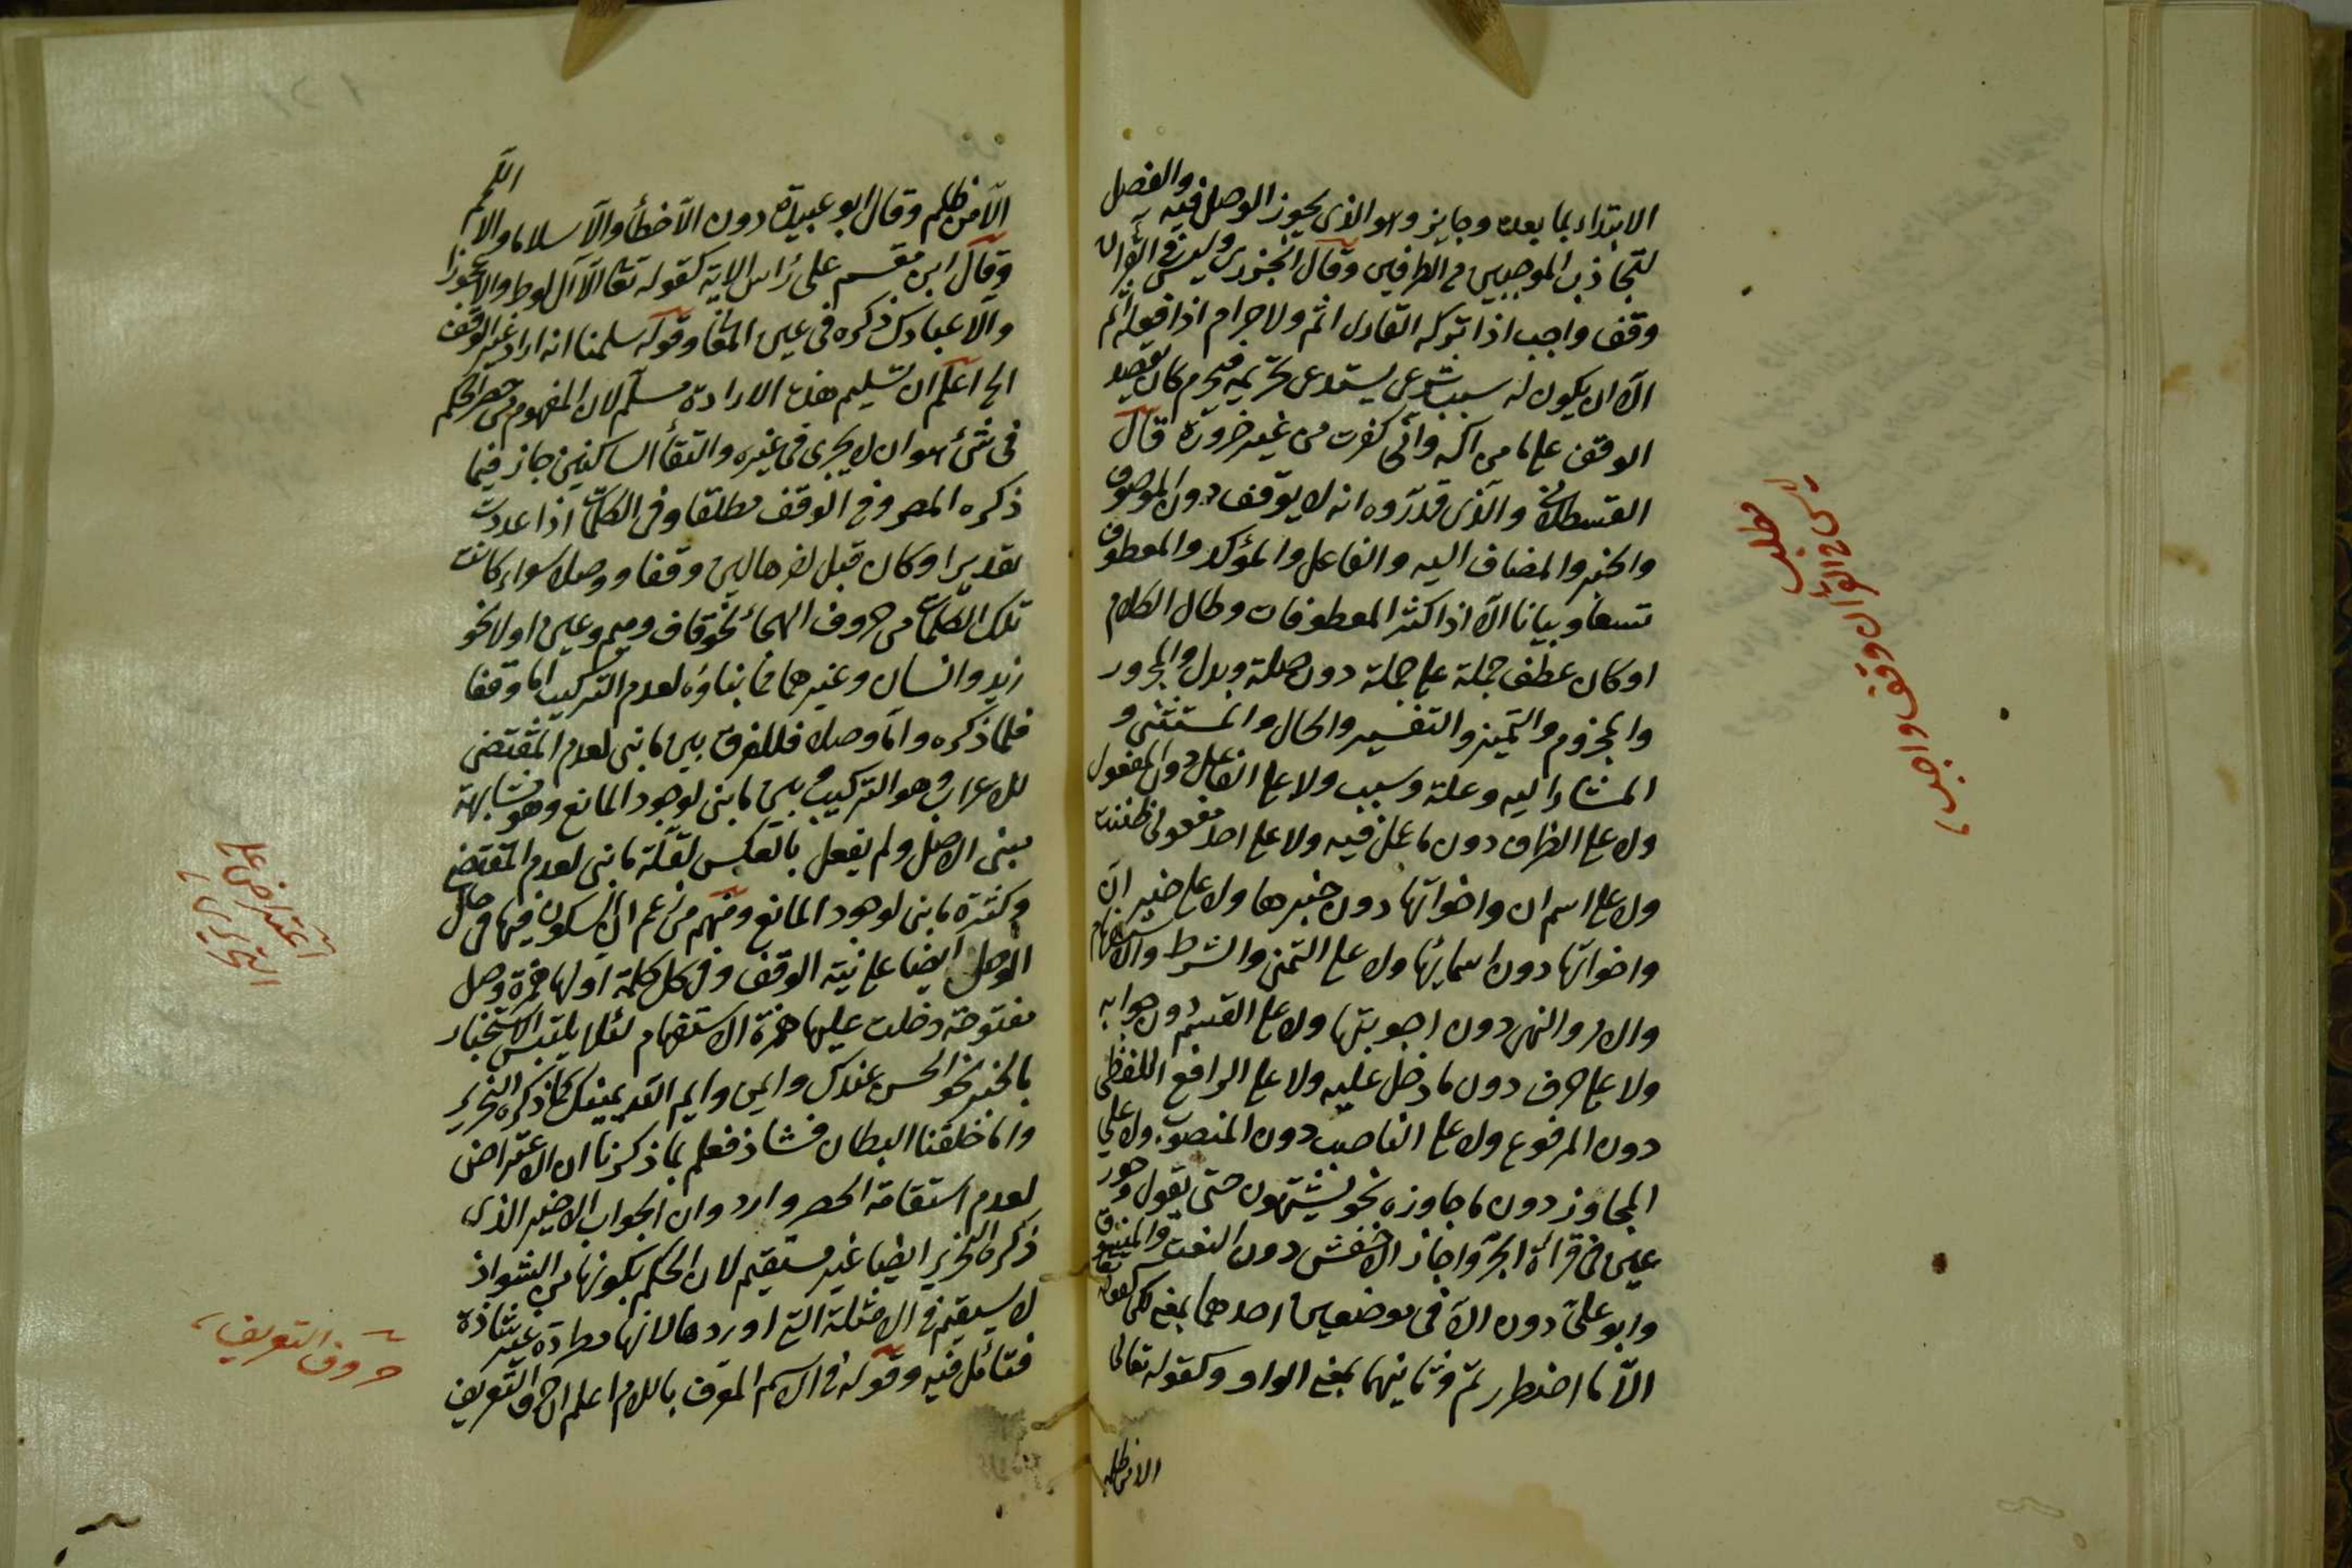 الابتداء بما بعده وجايز وهو الذى يجوز الوصل فيه والفصل
لتجاذب الموجبين من الطرفين وقال الجزرى وليس فى القرآن
وقف واجب اذا تركه القارى اثم ولا حرام اذا فعله اثم
الا ان يكون له سبب شرعى يستدعى تحريمه فيحرم كان يقصد
الوقف على ما من اله وانى كفرت من غير ضرورة قال
القسطلانى والذى قدروه انه لا يوقف دون الموصوف
والخبر والمضاف اليه والفاعل والمؤكد والمعطوف
نسقا وبيانا الا اذا كثر المعطوفات وطال الكلام
او كان عطف جملة على جملة دون صلة وبدل والمجرور
والمجزوم والتميز والتفسير والحال والمستثنى و
المشار اليه وعلة وسبب ولا على الفاعل دون المفعول
ولا على الظرف دون ما عمل فيه ولا على احد مفعولى ظننت
ولا على اسم ان واخواتها دون خبرها ولا على خبر ان
واخواتها دون اسمائها ولا على التمنى والشرط والاستفهام
والامر والنهى دون اجوبتها ولا على القسم دون جوابه
ولا على حرف دون ما دخل عليه ولا على الرافع اللفظى
دون المرفوع ولا على الناصب دون المنصوب ولا على
المجاوز دون ما جاوزه نحو يشتهون حتى يقول وحور
عين فى قراءة الجر واجاز الاخفش دون النعت والمنسوق
وابو على دون الا فى موضعين احدهما بمعنى لكن كقوله تعا
الا ما اضطررتم وثانيهما بمعنى الواو وكقوله تعالى
الا من ظلم
مطلب
ليس فى القرآن وقف واجب
الا من ظلم وقال ابو عبيدة دون الا خطأ والا سلاما والا اللمم
وقال ابن مقسم على رأس الاية كقوله تعا الا آل لوط والا عجوزا
والا عبادك ذكره فى عين المعانى وقوله سلمنا انه اراد غير الوقف
الخ اعلم ان تسليم هذه الارادة مسلم لان المفهوم من حصر الحكم
فى شئ هو ان لا يجرى فى غيره والتقأ الساكنين جاز فيما
ذكره المصر وفى الوقف مطلقا وفى الكلمات اذا عددت
تقديرا وكان قبل اخرها لين وقفا ووصلا سواء كانت
تلك الكلمات من حروف الهجاء نحو قاف وميم وعين او لا نحو
زيد وانسان وغيرهما مما بناؤه لعدم التركيب اما وقفا
فلما ذكره واما وصلا فللفرق بين ما بنى لعدم المقتضى
للاعراب وهو التركيب وبين ما بنى لوجود المانع وهو مشابهة
مبنى الاصل ولم يفعل بالعكس لقلة ما بنى لعدم المقتضى
وكثرة ما بنى لوجود المانع ومنهم من زعم ان السكون فيها فى حال
الوصل ايضا على نية الوقف وفى كل كلمة اولها همزة وصل
مفتوحة دخلت عليها همزة الاستفهام لئلا يلتبس الاستخبار
بالخبر نحو الحسن عندك وايمن وايم الله يمينك كما ذكره التحرير
واما خلقنا البطان فشاذ فعلم بما ذكرنا ان الاعتراض
لعدم استقامة الحصر وارد وان الجواب الاخير الذى
ذكره التحرير ايضا غير مستقيم لان الحكم بكونها من الشواذ
لا يستقيم فى الامثلة التى اوردها لانها مطردة غير شاذة
فتأمل فيه وقوله فى الاسم المعرف باللام اعلم ان حروف التعريف
اعتراض على
التحرير
حروف التعريف